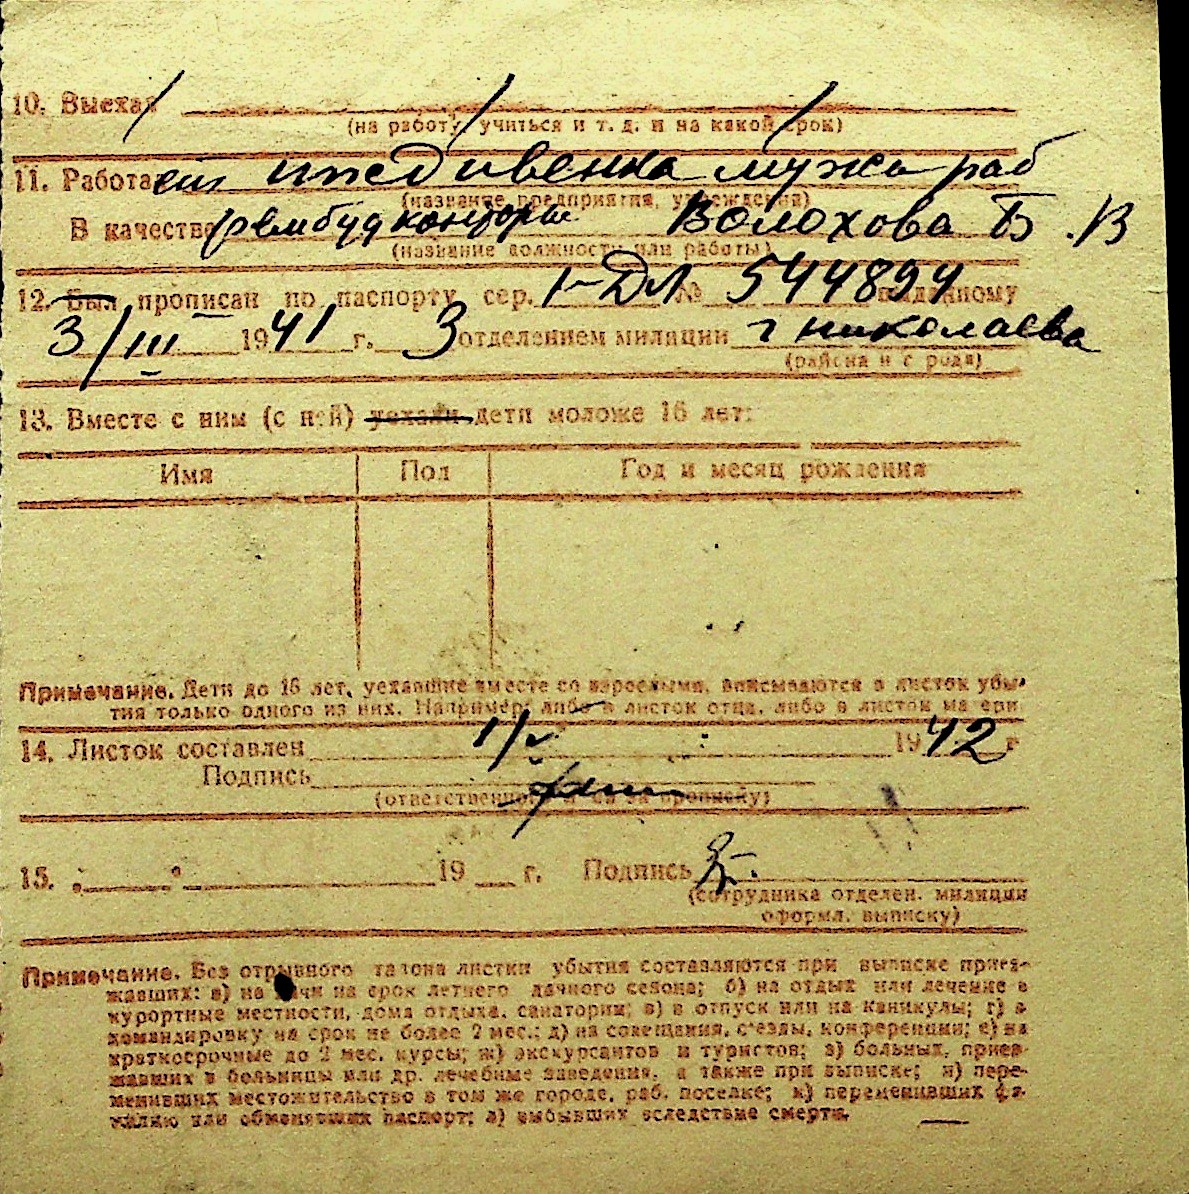 10. Выехал
(на работу, учиться и т. д. и на какой срок)
11. Работает иждивенка мужа раб
(название предприятия, учреждения)
В качестве рембудконторы Волохова Б. В
(название должности или работы)
12. Был прописан по паспорту сер. I-ДЛ № 544894 выданному
3/III 1941 г. 3 отделением милиции г Николаева
(района и города)
13. Вместе с ним (с ней) уехали дети моложе 16 лет:
Имя Пол Год и месяц рождения
Примечание. Дети до 16 лет, уехавшие вместе со взрослыми, вписываются в листок убы-
тия только одного из них. Например: либо в листок отца, либо в листок матери
14. Листок составлен 1/V 1942 г
Подпись
(ответственного за прописку)
15. „ " 19 г. Подпись
(сотрудника отделен. милиции
оформл. выписку)
Примечание. Без отрывного талона листки убытия составляются при выписке приез-
жавших: а) на дачи на срок летнего дачного сезона; б) на отдых или лечение в
курортные местности, дома отдыха, санатории; в) в отпуск или на каникулы; г) в
командировку на срок не более 2 мес.; д) на совещания, съезды, конференции; е) на
краткосрочные до 2 мес. курсы; ж) экскурсантов и туристов; з) больных, приез-
жавших в больницы или др. лечебные заведения, а также при выписке; и) пере-
менивших местожительство в том же городе, раб. поселке; к) переменивших фа-
милию или обменявших паспорт; л) выбывших вследствие смерти.